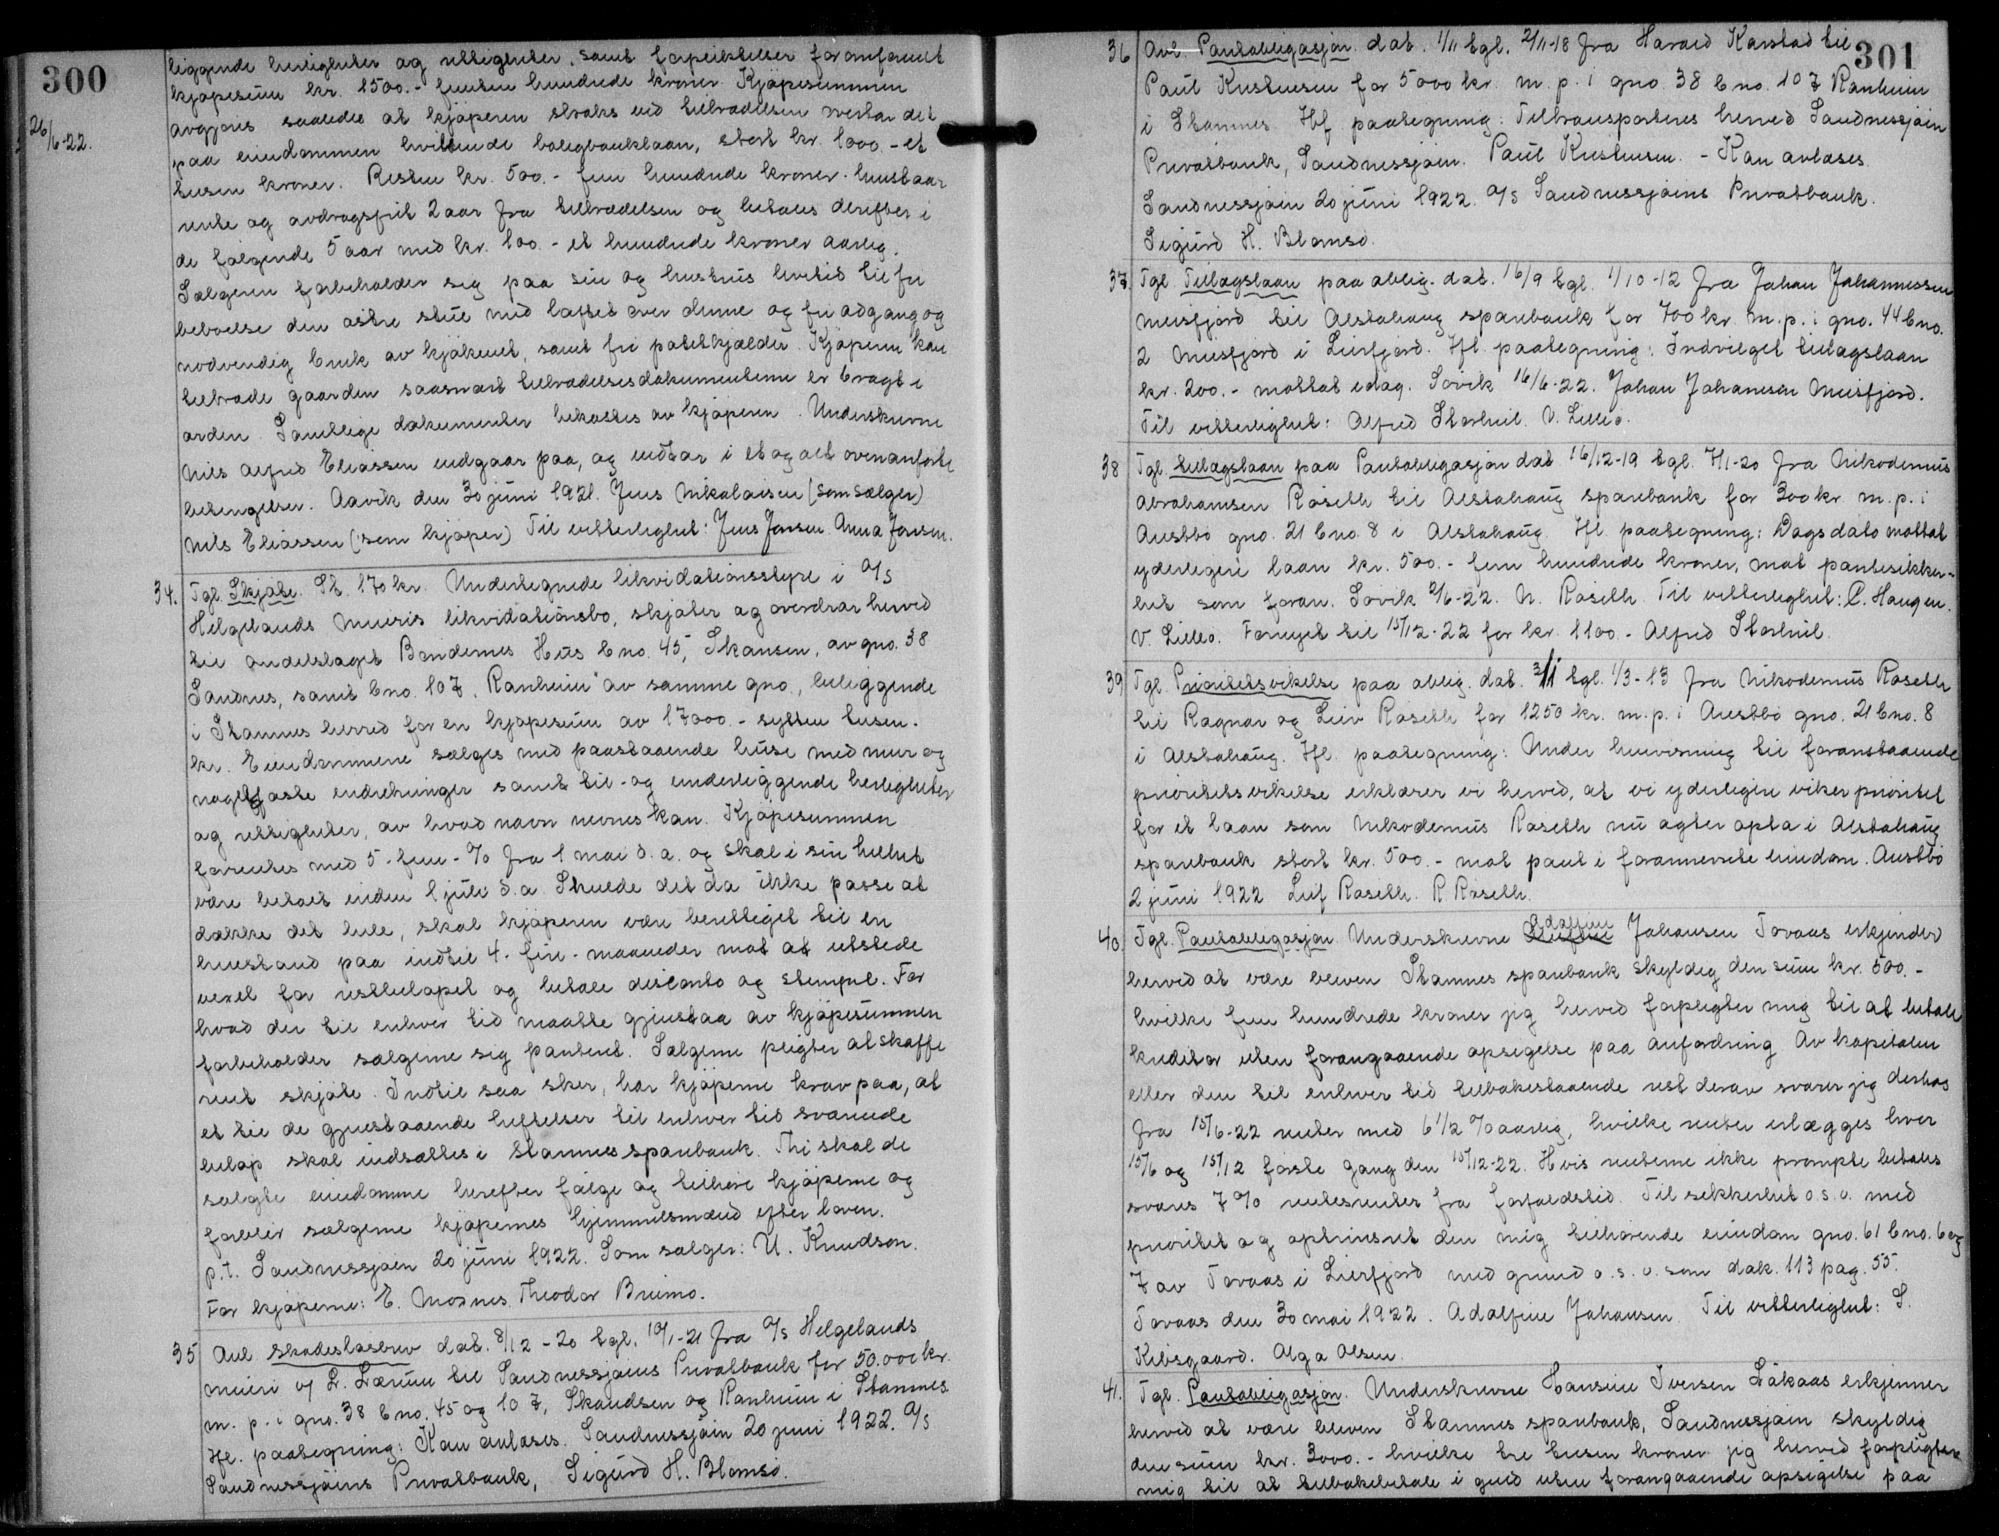 300
26/6-22.
liggende herligheter og rettigheter, samt forpliktelser for omforenet
kjøpesum kr. 1500.- femten hundrede kroner. Kjøpesummen
avgjøres saaledes at kjøperen straks ved tiltrædelsen overtar det
paa eiendommen hvilende boligbanklaan, stort kr. 1000.- et
tusen kroner. Resten kr. 500.- fem hundrede kroner henstaar
rente og avdragsfrit 2 aar fra tiltrædelsen og betales derefter i
de følgende 5 aar med kr. 100.- et hundrede kroner aarlig.
Sælgeren forbeholder sig paa sin og hustrus levetid til fri
beboelse den østre stue med loftet over denne og fri adgang og
nødvendig bruk av kjøkkenet, samt fri potetkjælder. Kjøperen kan
tiltræde gaarden saasnart tiltrædelsesdokumenterne er bragt i
orden. Samtlige dokumenter bekostes av kjøperen. Underskrevne
Nils Alfred Eliassen indgaar paa, og vedtar i et og alt ovenanførte
betingelser. Aavik den 30 juni 1921. Jens Nikolaisen (som sælger)
Nils Eliassen (som kjøper) Til vitterlighet: Jens Jensen. Anna Jensen.
34. Tgl. Skjøte. St. 170 kr. Undertegnede likvidationsstyre i A/S
Helgelands Mieris likvidationsbo, skjøter og overdrar herved
til andelslaget Bøndernes Hus bno. 45, Skansen, av gno. 38
Sandnes, samt bno. 107, "Ranheim" av samme gno., beliggende
i Stamnes herred for en kjøpesum av 17000.- sytten tusen-
kr. Eiendommene sælges med paastaaende huse med mur og
nagelfaste indretninger samt til- og underliggende herligheter
og rettigheter, av hvad navn nevnes kan. Kjøpesummen
forrentes med 5-fem-% fra 1 mai d.a. og skal i sin helhet
være betalt inden 1 juli d.a. Skulde det da ikke passe at
dække det hele, skal kjøperen være berettiget til en
henstand paa indtil 4-fire-maaneder mot at utstede
vexel for restbeløpet og betale disconto og stempel. For
hvad der til enhver tid maatte gjenstaa av kjøpesummen
forbeholder sælgerne sig panteret. Sælgerne pligter at skaffe
rent skjøte. Indtil saa sker, har kjøperne krav paa, at
et til de gjenstaaende heftelser til enhver tid svarende
beløp skal indsættes i Stamnes sparebank. Thi skal de
solgte eiendomme herefter følge og tilhøre kjøperne og
forblir sælgerne kjøpernes hjemmelsmænd efter loven.
p.t. Sandnessjøen 20 juni 1922. Som sælger: U. Knudsen.
For kjøperne: E. Mosnes. Theodor Breimo.
35 Avl. skadesløsbrev dat. 8/12-20 tgl. 10/1-21 fra A/S Helgelands
mieri v/ L. Lærum til Sandnessjøens Privatbank for 50.000 kr.
m. p. i gno. 38 bno. 45 og 107, Skandsen og Ranheim i Stamnes.
Hfl. paategning: Kan avløses. Sandnessjøen 20 juni 1922. A/S
Sandnessjøens Privatbank, Sigurd H. Blomsø.
301
36 Avl. Pantobligasjon dat. 1/11 tgl. 2/11-18 fra Harald Karstad til
Paul Kristensen for 5000 kr. m. p. i gno. 38 bno. 107 Ranheim
i Stamnes. Hfl paategning: Tiltransporteres herved Sandnessjøen
Privatbank, Sandnessjøen. Paul Kristensen. - Kan avløses.
Sandnessjøen 20 juni 1922. A/S Sandnessjøens Privatbank.
Sigurd H. Blomsø.
37. Tgl. Tillægslaan paa oblig. dat. 16/9 tgl. 1/10-12 fra Johan Johannessen
Meisfjord til Alstahaug sparebank for 700 kr. m.p. i gno. 44 bno.
2 Meisfjord i Leirfjord. Hfl. paategning: Indvilget tillægslaan
kr. 200.- mottat idag. Søvik 16/6-22. Johan Johansen Meisfjord.
Til vitterlighet: Alfred Storheil. V. Lillea.
38 Tgl. tillægslaan paa Pantobligasjon dat 16/12-19 tgl. 7/1-20 fra Nikodemus
Abrahamsen Røseth til Alstahaug sparebank for 300 kr. m. p. i
Austbø gno. 21 bno. 8 i Alstahaug. Hfl paategning: Dags dato mottat
yderligere laan kr. 500.- fem hundrede kroner, mot pantesikker-
het som foran. Søvik 2/6-22. N. Røseth. Til vitterlighet: P. Haugen.
V. Lillea. Fornyet til 15/12-22 for kr. 1100.- Alfred Storheil.
39 Tgl. Prioritetsvikelse paa oblig. dat. 3/1 tgl. 1/3-13 fra Nikodemus Røseth
til Ragnar og Leiv Røseth for 1250 kr. m. p. i Austbø gno. 21 bno. 8
i Alstahaug. Hfl. paategning: Under henvisning til foranstaaende
prioritetsvikelse erklærer vi herved, at vi yderligere viker prioritet
for et laan som Nikodemus Røseth nu agter opta i Alstahaug
sparebank stort kr. 500.- mot pant i forannevnte eiendom. Austbø
2 juni 1922 Leif Røseth. R Røseth.
40. Tgl. Pantobligasjon. Underskrevne Adolfine Johansen Toraas erkjender
herved at være bleven Stamnes sparebank skyldig den sum kr. 500.-
hvilke fem hundrede kroner jeg herved forpligter mig til at betale
kreditor uten forangaaende opsigelse paa anfordring. Av kapitalen
eller den til enhver tid tilbakestaaende rest derav svarer jeg derhos
fra 15/6-22 renter med 6 1/2 % aarlig, hvilke renter erlægges hver
15/6 og 15/12 første gang den 15/12-22. Hvis renterne ikke prompte betales
svares 7 % rentesrenter fra forfaldstid. Til sikkerhet o.s.v. med
prioritet og optrinsret den mig tilhørende eiendom gno. 61 bno. 6 og
7 av Toraas i Leirfjord med grund o.s.v. som dok. 113 pag. 55.
Toraas den 30 mai 1922. Adolfine Johansen. Til vitterlighet: S.
Kibsgaard. Olga Olsen.
41. Tgl. Pantobligasjon. Underskrevne Hansine Iversen Låkaas erkjenner
herved at være bleven Stamnes sparebank, Sandnessjøen skyldig
den sum kr. 3000.- hvilke tre tusen kroner jeg herved forpligter
mig til at tilbakebetale i guld uten forangaaende opsigelse paa